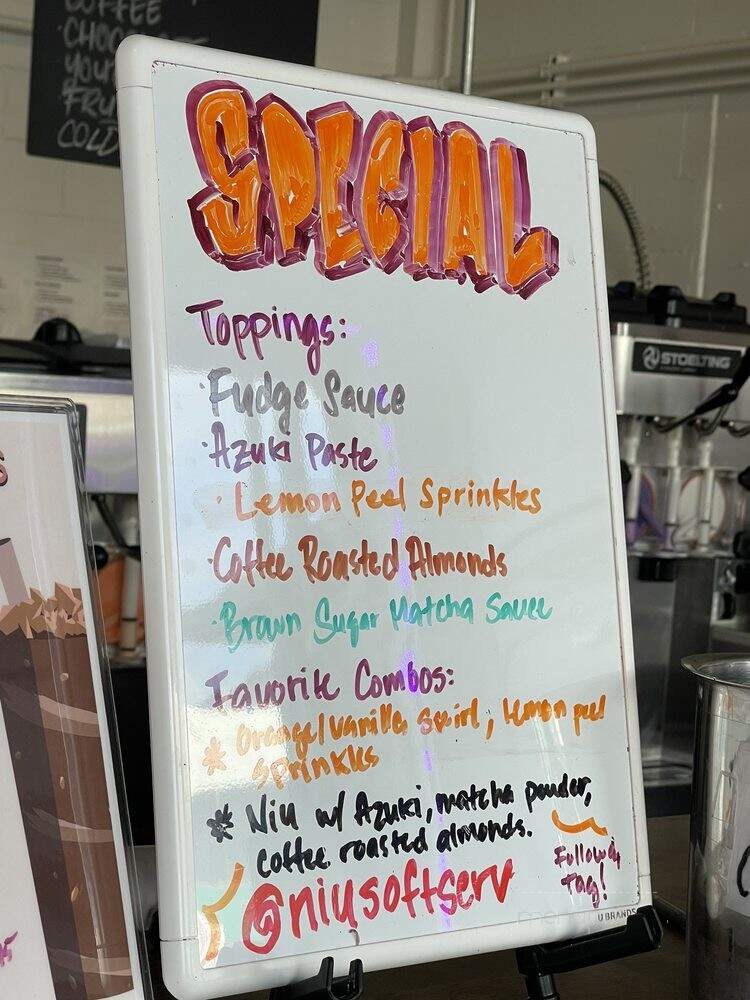 COFFEE
YOU
FRU
COLD
SPECIAL
Toppings:
· Fudge Sauce
· Azuki Paste
· Lemon Peel Sprinkles
· Coffee Roasted Almonds
· Brown Sugar Matcha Sauce
Favorite Combos:
* Orange/Vanilla swirl, lemon peel
sprinkles
* Niu w/ Azuki, matcha powder,
coffee roasted almonds.
Follow &
Tag!
@niusoftserv
U BRANDS
STOELTING